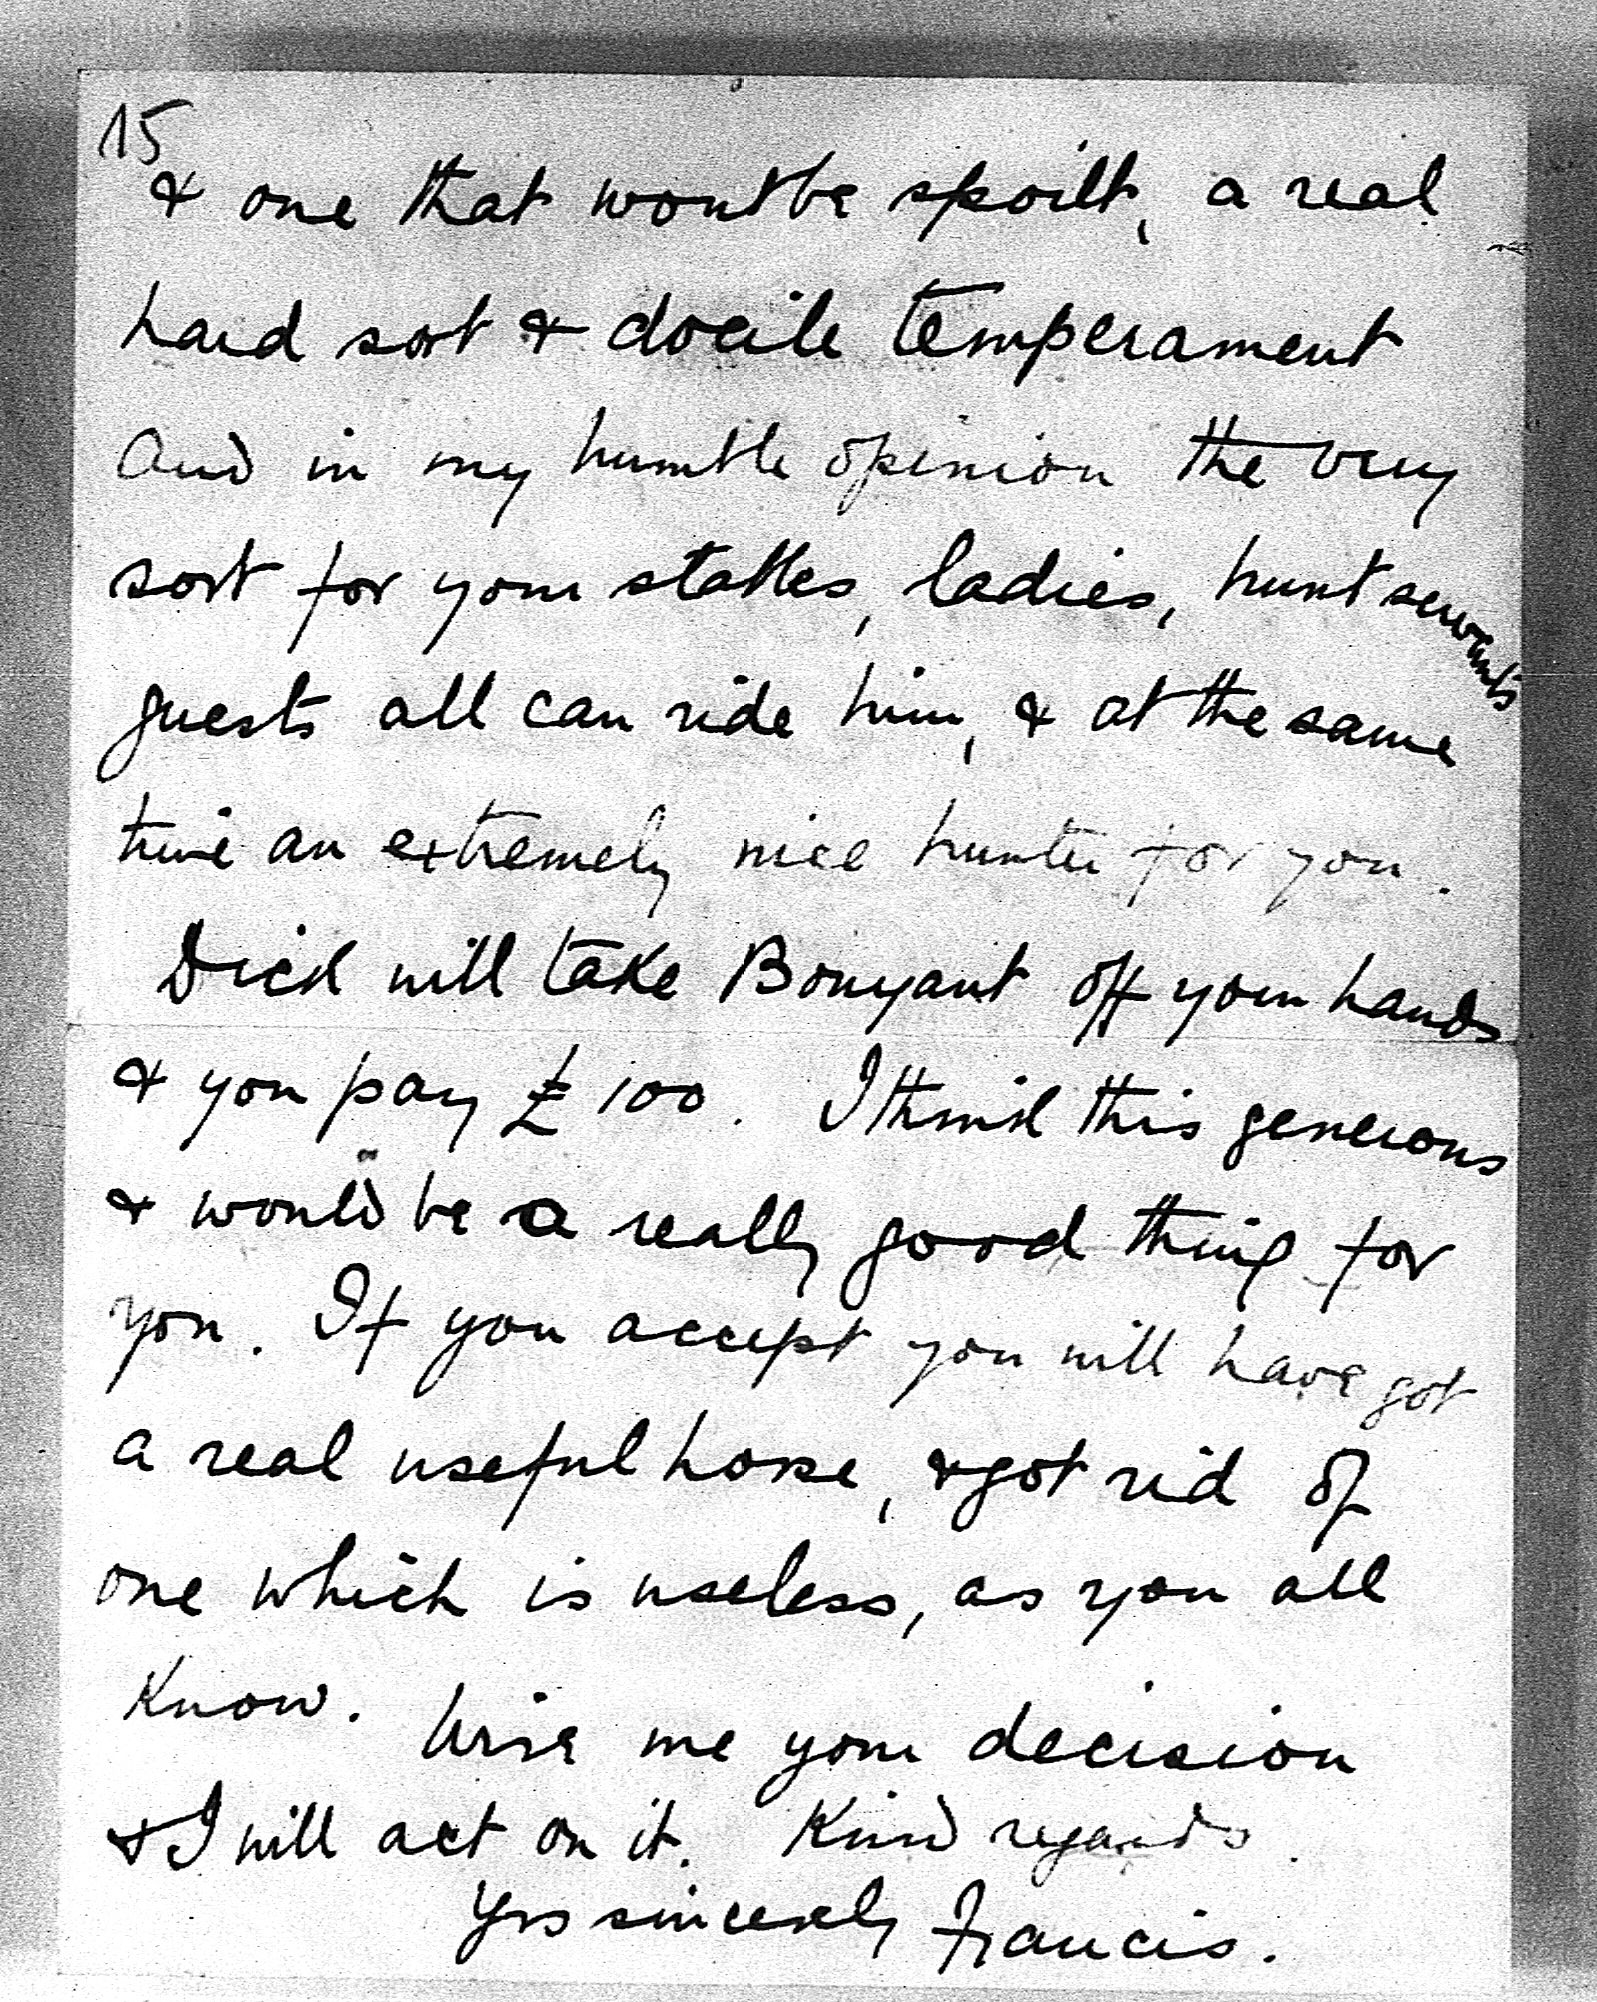 15
& one that wont be spoilt, a real
hard sort & docile temperament
And in my humble opinion the very
sort for your stables, ladies, hunt servants
guests all can ride him, & at the same
time an extremely nice hunter for you.
Dick will take Bouyant off your hands
& you pay £100. I think this generous
& would be a really good thing for
you. If you accept you will have got
a real useful horse, & got rid of
one which is useless, as you all
know. Wire me your decision
& I will act on it. Kind regards.
Yrs sincerely Francis.